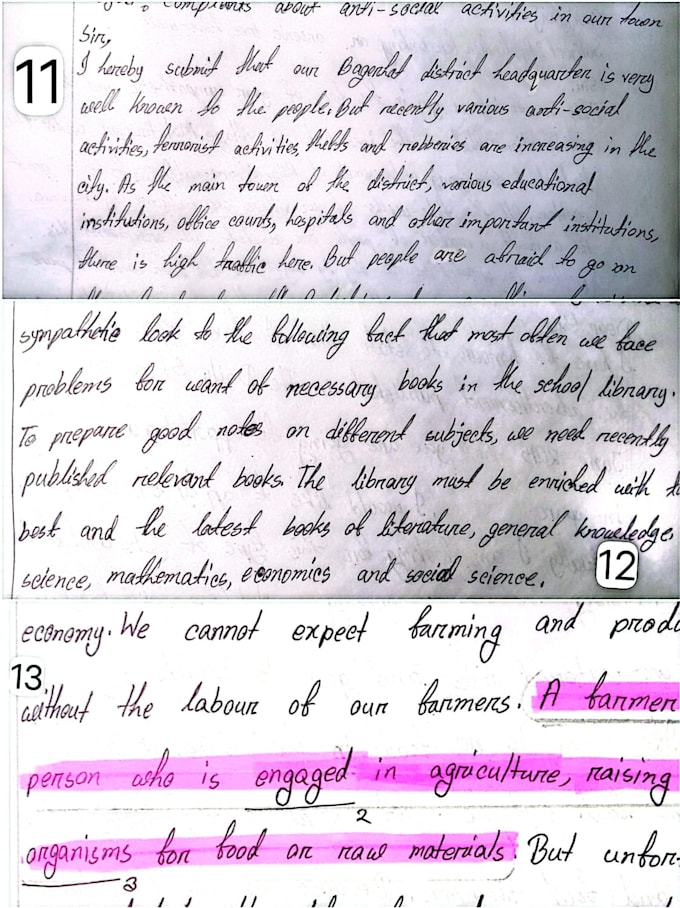 complaints about anti-social activities in our town
Sir,
11
I hereby submit that our Bagerhat district headquarter is very
well known to the people. But recently various anti-social
activities, terrorist activities, thefts and robberies are increasing in the
city. As the main town of the district, various educational
institutions, office courts, hospitals and other important institutions,
there is high traffic here. But people are afraid to go on
sympathetic look to the following fact that most often we face
problems for want of necessary books in the school library.
To prepare good notes on different subjects, we need recently
published relevant books. The library must be enriched with
best and the latest books of literature, general knowledge,
science, mathematics, economics and social science.
12
economy. We cannot expect farming and
13
without the labour of our farmers. A farmer
person who is engaged in agriculture, raising
2
organisms for food or raw materials. But unfor-
3